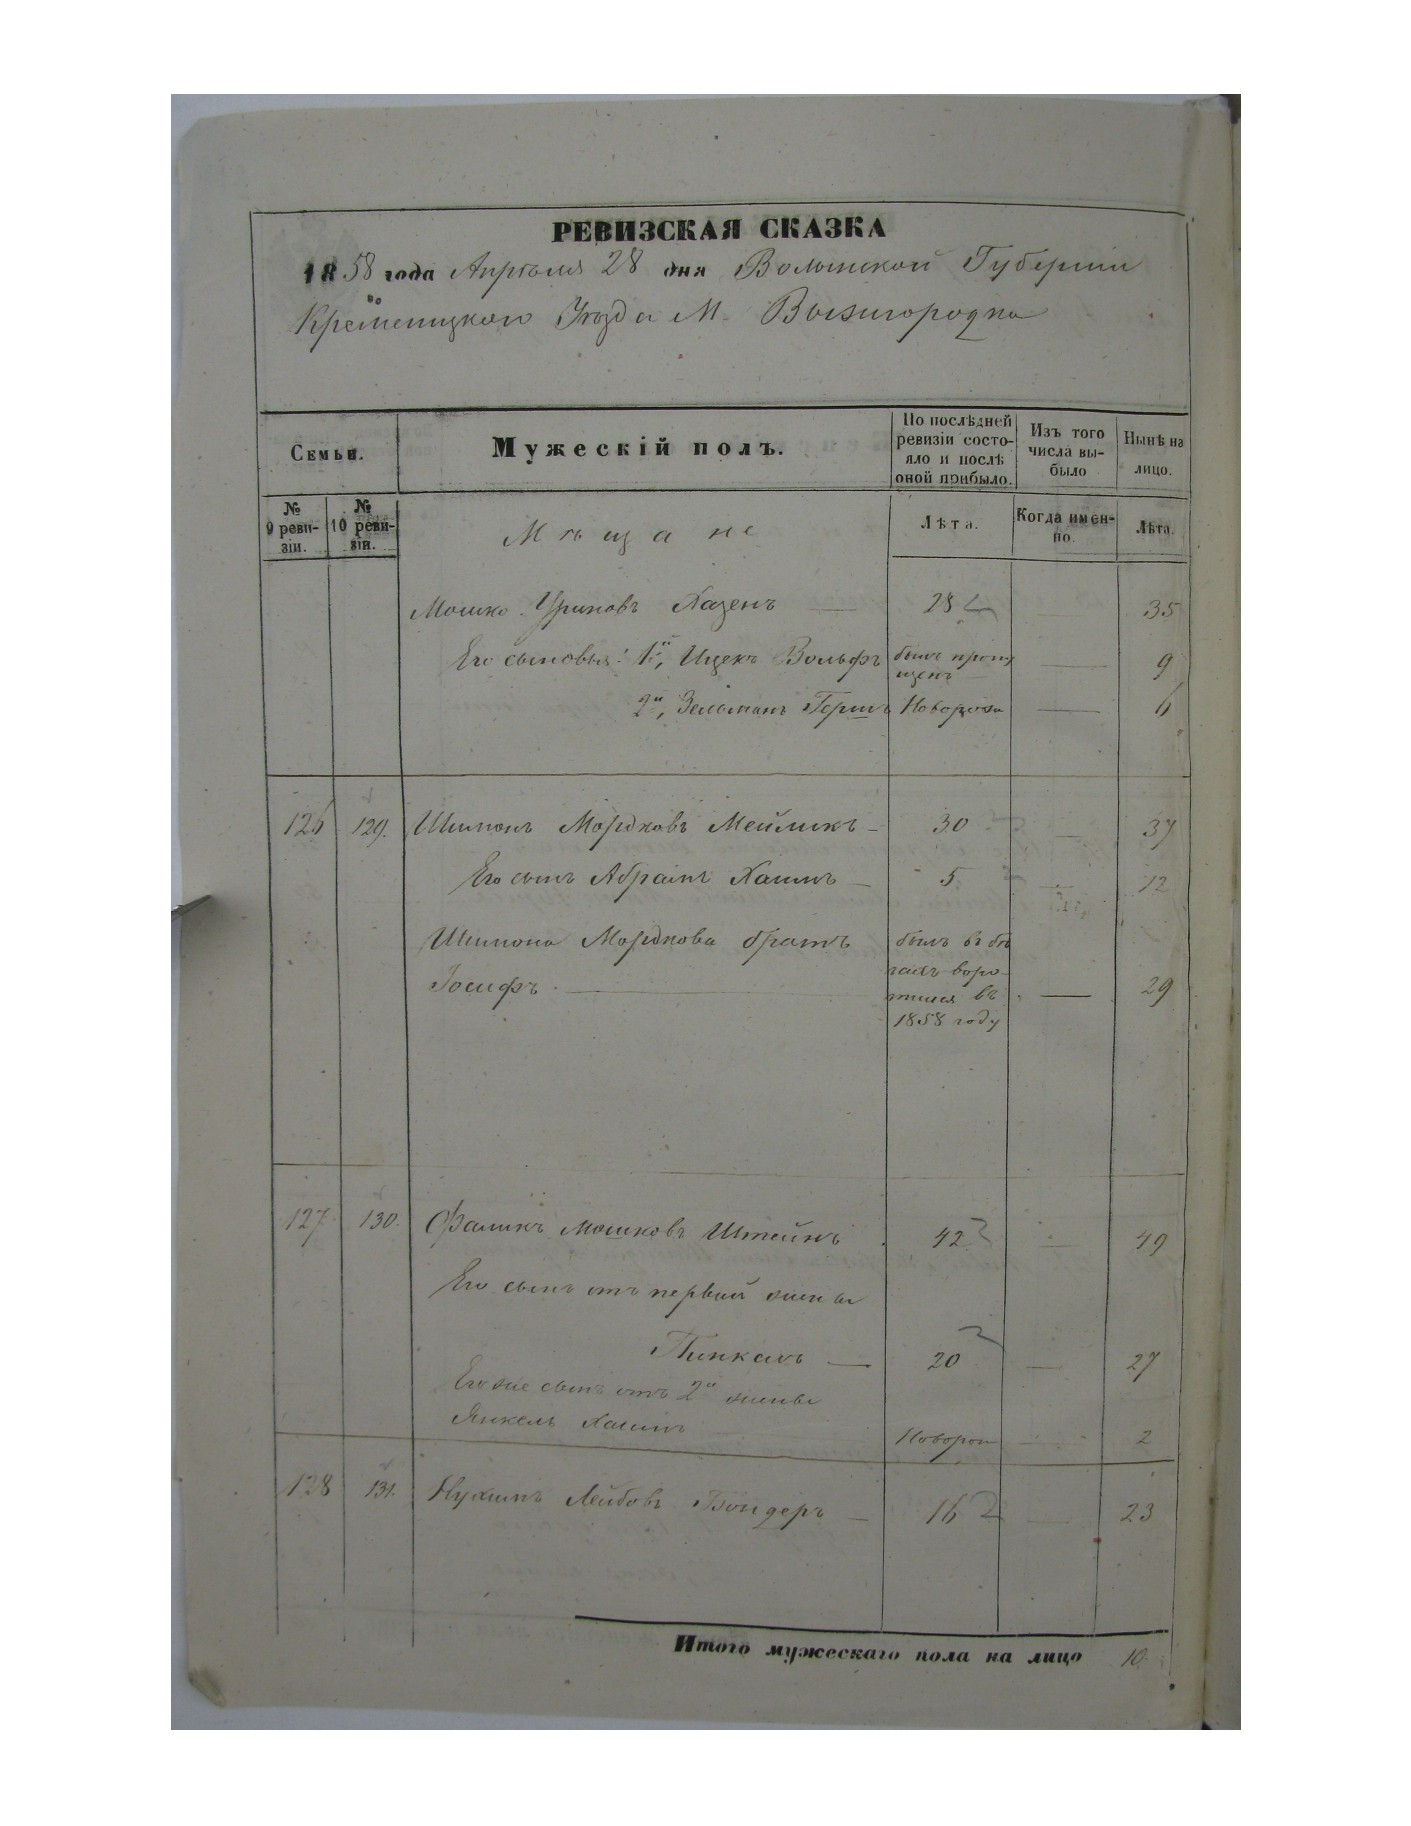 РЕВИЗСКАЯ СКАЗКА
1858 года Апрѣля 28 дня Волынской Губерніи
Кременецкаго Уѣзда М. Вышгородка
Семьи.
Мужескій полъ.
По послѣдней ревизіи состояло и послѣ оной прибыло.
Изъ того числа выбыло
Нынѣ на лицо.
№ 9 ревизіи.
№ 10 ревизіи.
Мѣщане
Лѣта.
Когда именно.
Лѣта.
Мошко Уриновъ Хазенъ — 28 35
Его сыновья: 1й, Ицекъ Вольфъ былъ пропущенъ — 9
2й, Зельманъ Гершъ Новорож — 6
126 129. Шимонъ Мордковъ Мейликъ — 30 — 37
Его сынъ Абрамъ Хаимъ — 5 — 12
Шимона Мордкова братъ былъ въ бѣ
Іосифъ. — гахъ воро
тился въ — 29
1858 году
127 130. Фаликъ Мошковъ Штейнъ 42 — 49
Его сынъ отъ первой жены
Пинкасъ — 20 — 27
Его же сынъ отъ 2й жены
Янкель Хаимъ Новорож — 2
128 131. Нухимъ Лейбовъ Бондеръ — 16 — 23
Итого мужескаго пола на лицо 10